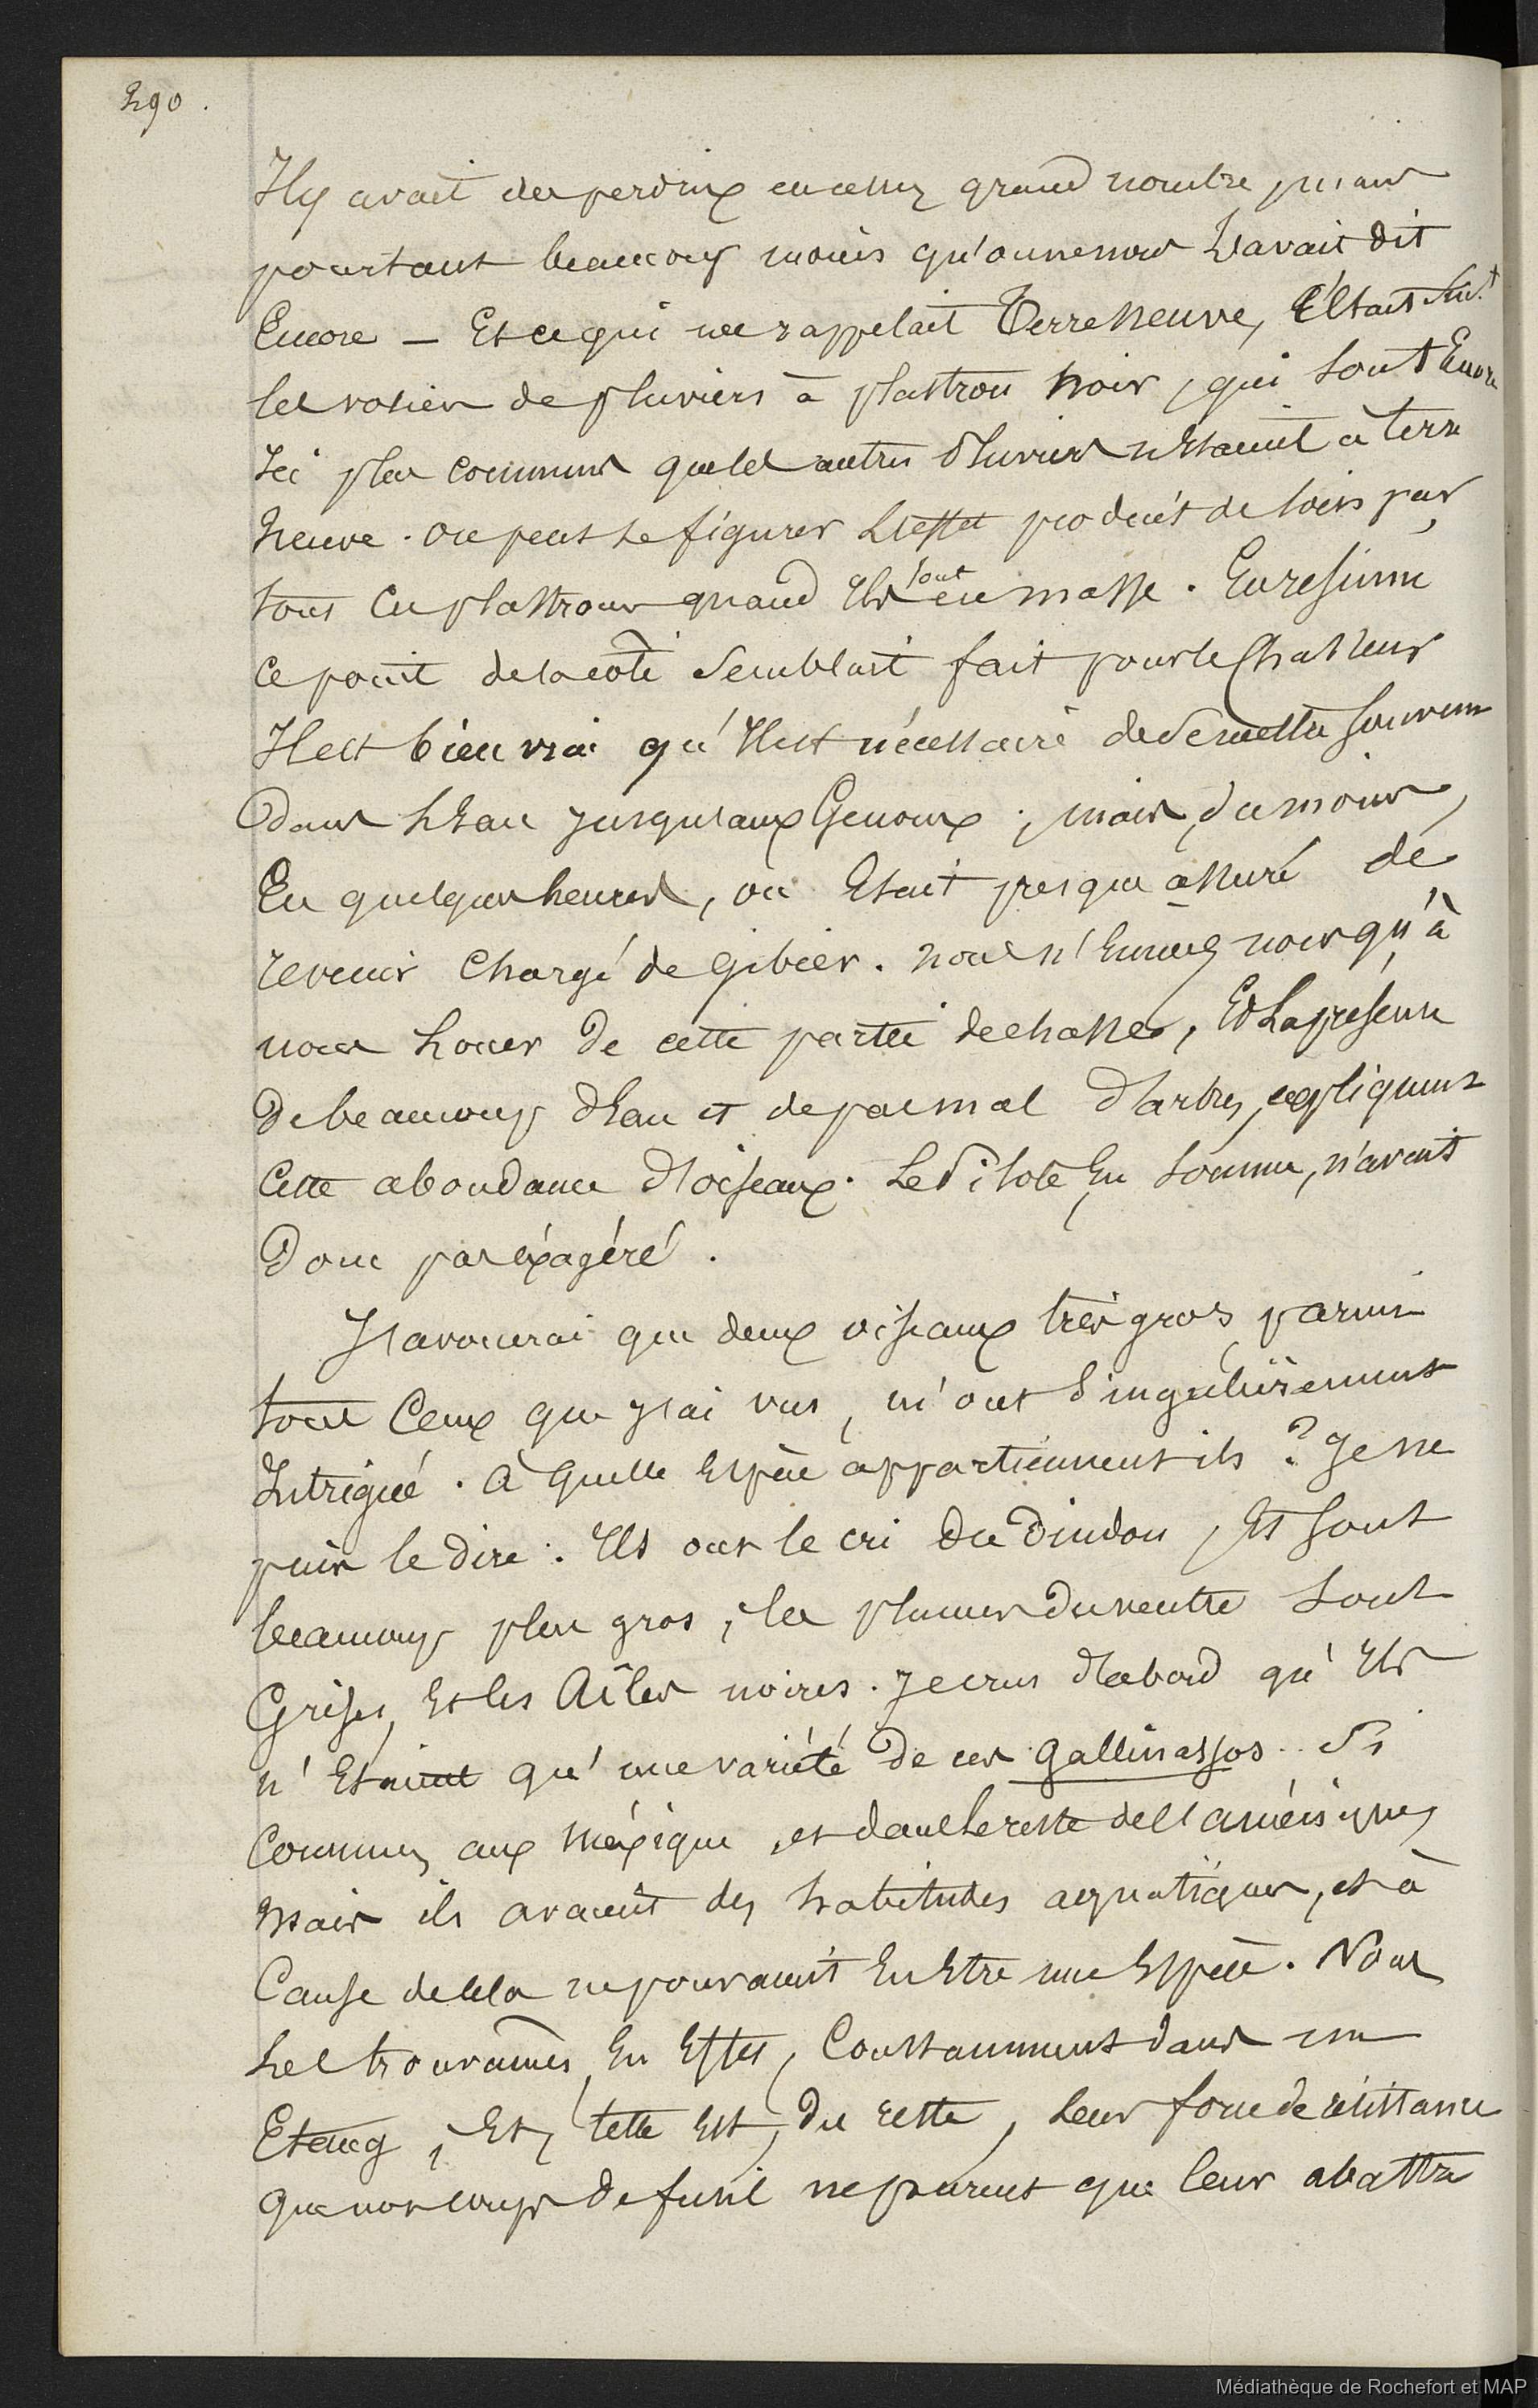 290.
Il y avait des perdrix en assez grand nombre, mais
pourtant beaucoup moins qu'on ne nous l'avait dit
Encore — Et ce qui me rappelait Terre Neuve, C'était
les voliers de pluviers à plastron noir, qui sont Encore
Ici plus communs que les autres Pluviers n'Etaient à terre
neuve. On peut se figurer L'effet produit de loin par
tous ces plastrons quand Ils sont en masse. En résumé
ce point de la côte Semblait fait pour le Chasseur
Il est bien vrai qu'Il est nécessaire de Se mettre Souvent
Dans L'Eau jusqu'aux Genoux ; mais, du moins,
En quelques heures, on Etait presque assuré de
revenir Chargé de Gibier. Nous n'Eumes nous qu'à
nous Louer De cette partie de chasse, Et La présence
De beaucoup d'Eau et de pas mal D'arbres, expliquent
Cette abondance D'oiseaux. Le Pilote En Somme, n'avait
Donc pas éxagéré.
J'avouerai que deux oiseaux très gros, parmi
tous Ceux que j'ai vus, m'ont Singulièrement
Intrigué. à Quelle Espèce appartiennent ils ? Je ne
puis le dire. Ils ont le cri Du Dindon, Et Sont
beaucoup plus gros ; les plumes Du ventre Sont
Grises, Et les Ailes noires. Je crus D'abord qu'Ils
n'Etaient qu'une variété De ces Gallinassos. Si
Communs aux Méxique, et dans le reste de l'amérique,
Mais ils avaient des habitudes aquatiques, et à
Cause de cela ne pouvaient En Etre une Espèce. Nous
Les trouvames, En Effet, Constamment dans un
Etang ; Et, telle Est, Du reste, Leur force de résistance
Que nos coups de fusil ne purent que leur abattre
Médiathèque de Rochefort et MAP